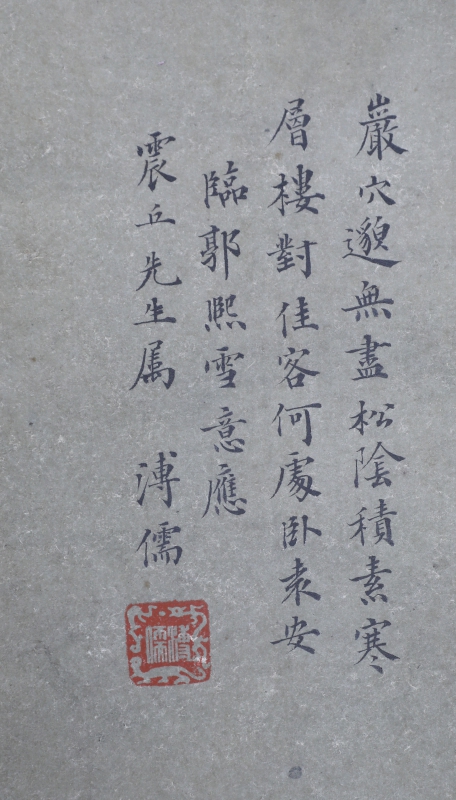 巖穴邈無盡松陰積素寒
層樓對佳客何處卧袁安
臨郭熙雪意應
震丘先生属 溥儒
溥儒